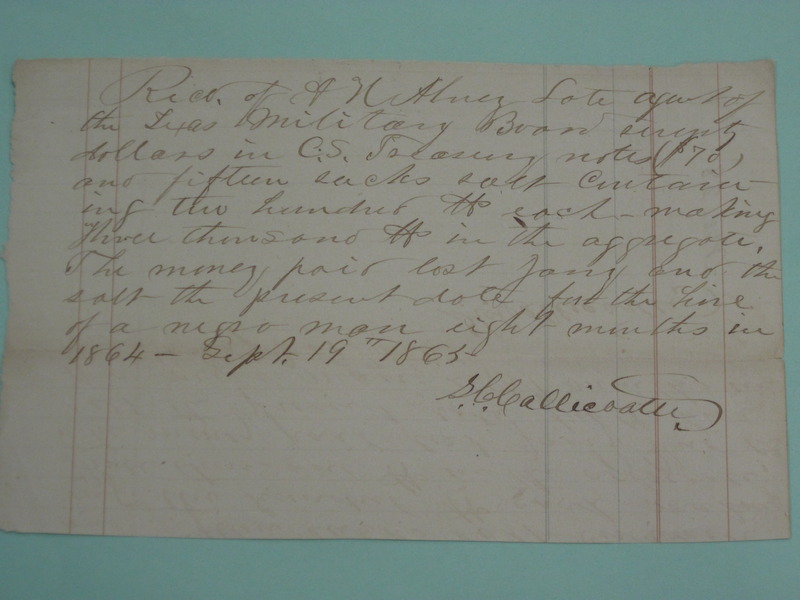 Recd. of A H Abney late agent of
the Texas Military Board seventy
dollars in C.S. Treasury notes ($70)
and fifteen sacks salt contain-
ing two hundred lbs each - making
three thousand lbs in the aggregate.
The money paid last Jany and the
salt the present date for the hire
of a negro man eight months in
1864 - Sept. 19th 1865